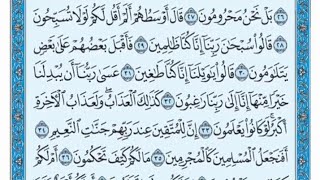 ٢٦ بَلْ نَحْنُ مَحْرُومُونَ ٢٧ قَالَ أَوْسَطُهُمْ أَلَمْ أَقُل لَّكُمْ لَوْلَا تُسَبِّحُونَ
٢٨ قَالُوا۟ سُبْحَٰنَ رَبِّنَآ إِنَّا كُنَّا ظَٰلِمِينَ ٢٩ فَأَقْبَلَ بَعْضُهُمْ عَلَىٰ بَعْضٍ
يَتَلَٰوَمُونَ ٣٠ قَالُوا۟ يَٰوَيْلَنَآ إِنَّا كُنَّا طَٰغِينَ ٣١ عَسَىٰ رَبُّنَآ أَن يُبْدِلَنَا
خَيْرًا مِّنْهَآ إِنَّآ إِلَىٰ رَبِّنَا رَٰغِبُونَ ٣٢ كَذَٰلِكَ ٱلْعَذَابُ وَلَعَذَابُ ٱلْءَاخِرَةِ
أَكْبَرُ لَوْ كَانُوا۟ يَعْلَمُونَ ٣٣ إِنَّ لِلْمُتَّقِينَ عِندَ رَبِّهِمْ جَنَّٰتِ ٱلنَّعِيمِ ٣٤
أَفَنَجْعَلُ ٱلْمُسْلِمِينَ كَٱلْمُجْرِمِينَ ٣٥ مَا لَكُمْ كَيْفَ تَحْكُمُونَ ٣٦ أَمْ لَكُمْ